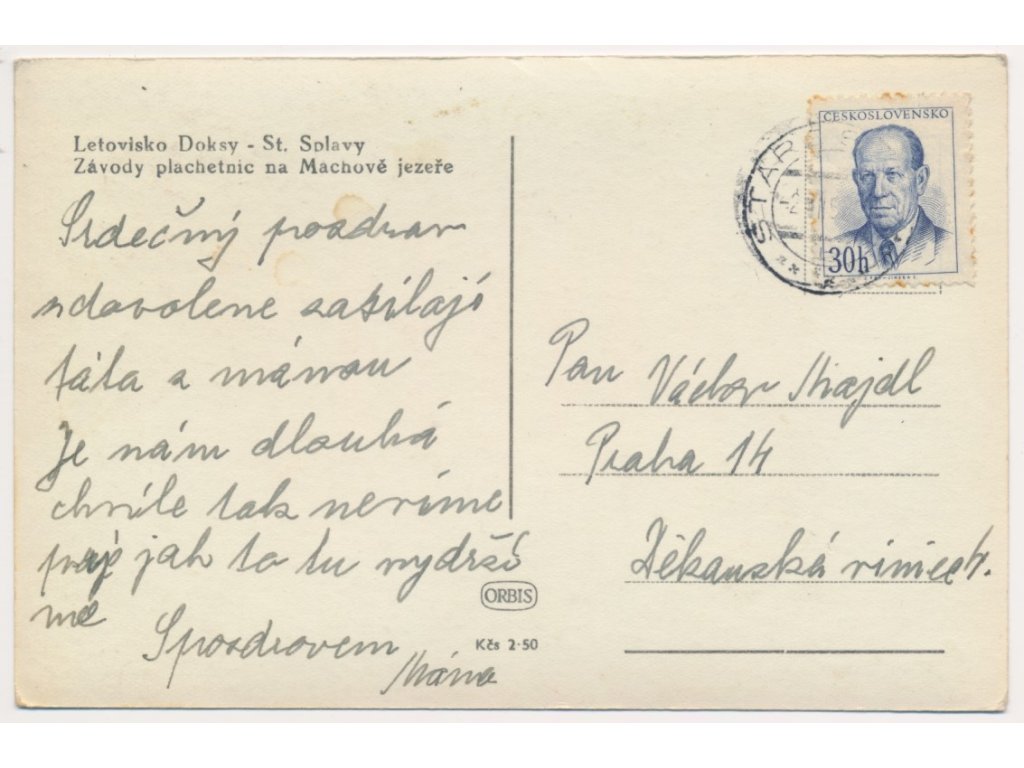 Letovisko Doksy - St. Splavy
Závody plachetnic na Machově jezeře
Srdečný pozdrav
z dovolene zasílají
táta a mámou
Je nám dlouhá
chvíle tak nevíme
jak to tu vydrží
me
S pozdravem
Máma
ČESKOSLOVENSKO
30h
STAR
Pan Václav Majdl
Praha 14
Děkanská vinice
ORBIS
Kčs 2·50